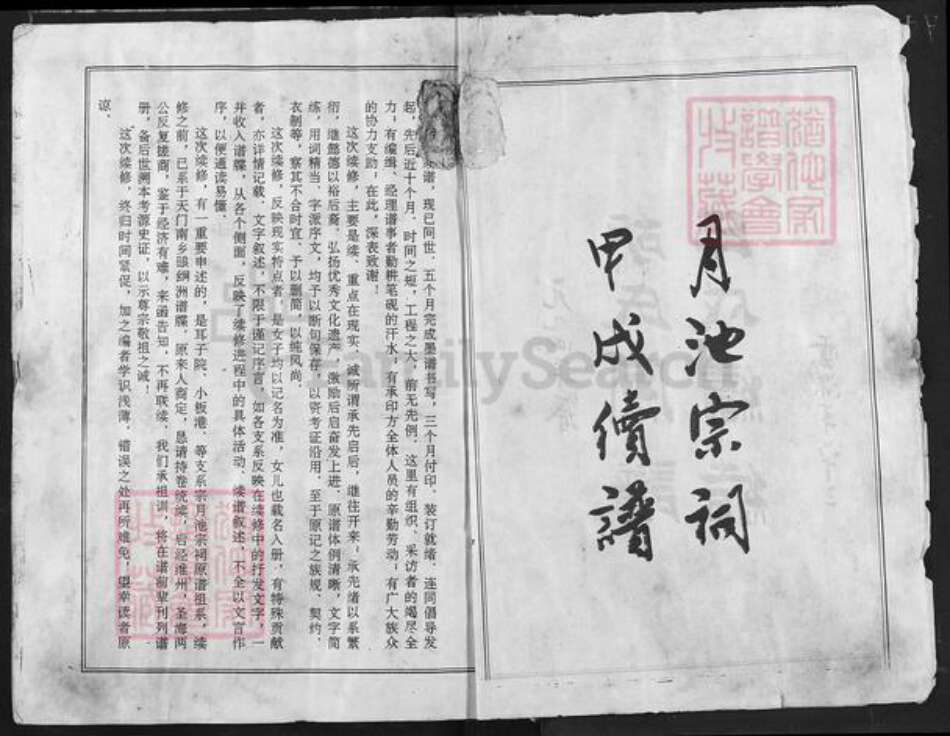 月池宗祠
甲戌續譜
谱，现已问世．五个月完成墨谱书写，三个月付印、装订就绪．连同倡导发
起，先后近十个月．时间之短，工程之大，前无先例．这里有组织、采访者的竭尽全
力；有编缉、经理谱事者勤耕笔砚的汗水，有承印方全体人员的辛勤劳动；有广大族众
的协力支助；在此，深表致谢！
这次续修，主要是续、重点在现实，诚所谓承先启后，继往开来；承先绪以系繁
衍，继懿德以裕后裔、弘扬优秀文化遗产，激励后启奋发上进．原谱体例清晰，文字简
练，用词精当．字派序文，均予以断句保存，以资考证沿用．至于原记之族规、契约，
衣制等，察其不合时宜、予以删简，以纯风尚．
这次续修，反映现实特点者，是女子均以记名为准，女儿也载名入册，有特殊贡献
者，亦详情记载．文字叙述，不限于谨记序言，如各支系反映在续修中的抒发文字，一
并收入谱牒，从各个侧面，反映了续修进程中的具体活动．续谱叙述，不全以文言作
序，以便通读易懂．
这次续修，有一重要申述的，是耳子院、小板港、等支系宗月池宗祠原谱祖系，续
修之前，已系于天门南乡 洲谱牒．原来人商定，恳请持卷统续，启经维州，圣海两
公反复搓商，鉴于经济有难，来函告知，不再联续．我们承祖训，将在谱前辈刊列谱
册，备后世溯本考源史证，以示尊宗敬祖之诚！
这次续修，终归时间紧促，加之编者学识浅薄，错误之处再所难免，望幸读者原
谅．
FamilySearch